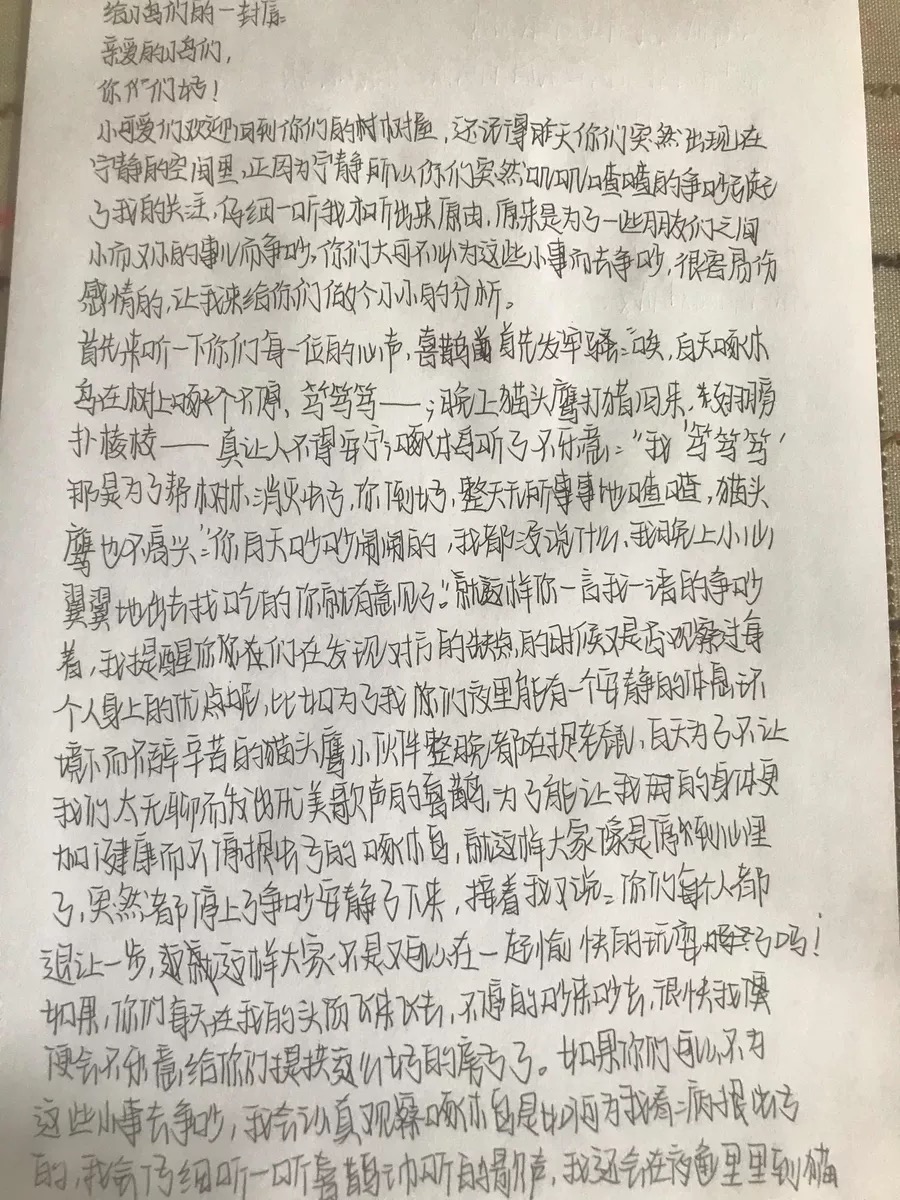 给小鸟们的一封信
亲爱的小鸟们，
你们好！
小可爱们欢迎回到你们的树屋，还记得昨天你们突然出现在
宁静的空间里，正因为宁静所以你们突然叽叽喳喳的争吵引起
了我的关注，仔细一听我才听出来原由，原来是为了一些朋友们之间
小而又小的事儿而争吵，你们大可不必为这些小事而去争吵，很容易伤
感情的，让我来给你们做个小小的分析。
首先来听一下你们每一位的心声，喜鹊首先发牢骚：唉，白天啄木
鸟在树上啄个不停，笃笃笃——；晚上猫头鹰打猎回来，翅膀
扑棱棱——真让人不得安宁；啄木鸟听了不乐意：“我‘笃笃笃’
那是为了帮树木消灭虫子，你倒好，整天无所事事地喳喳，猫头
鹰也不高兴：“你白天吵吵闹闹的，我都没说什么，我晚上小心
翼翼地出去找吃的你就有意见了。”就这样你一言我一语的争吵
着，我提醒你们在发现对方的缺点的时候又是否观察过每
个人身上的优点呢，比如为了我你们这里能有一个安静的休息环
境而不辞辛苦的猫头鹰小伙伴整晚都在捉老鼠，白天为了不让
我们太无聊而发出优美歌声的喜鹊，为了能让我的身体更
加健康而不停捉虫子的啄木鸟，就这样大家像是停到心里
了，突然都停止了争吵安静了下来，接着我又说：你们每个人都
退让一步，这样大家不是又可以在一起愉快的玩耍了吗！
如果，你们每天在我的头顶飞来飞去，不停的吵来吵去，很快我
便会不乐意给你们提供这么好的房子了。如果你们可以不为
这些小事去争吵，我会认真观察啄木鸟是如何为我看病捉虫子
的，我会仔细听一听喜鹊动听的歌声，我还会在夜色里看到猫